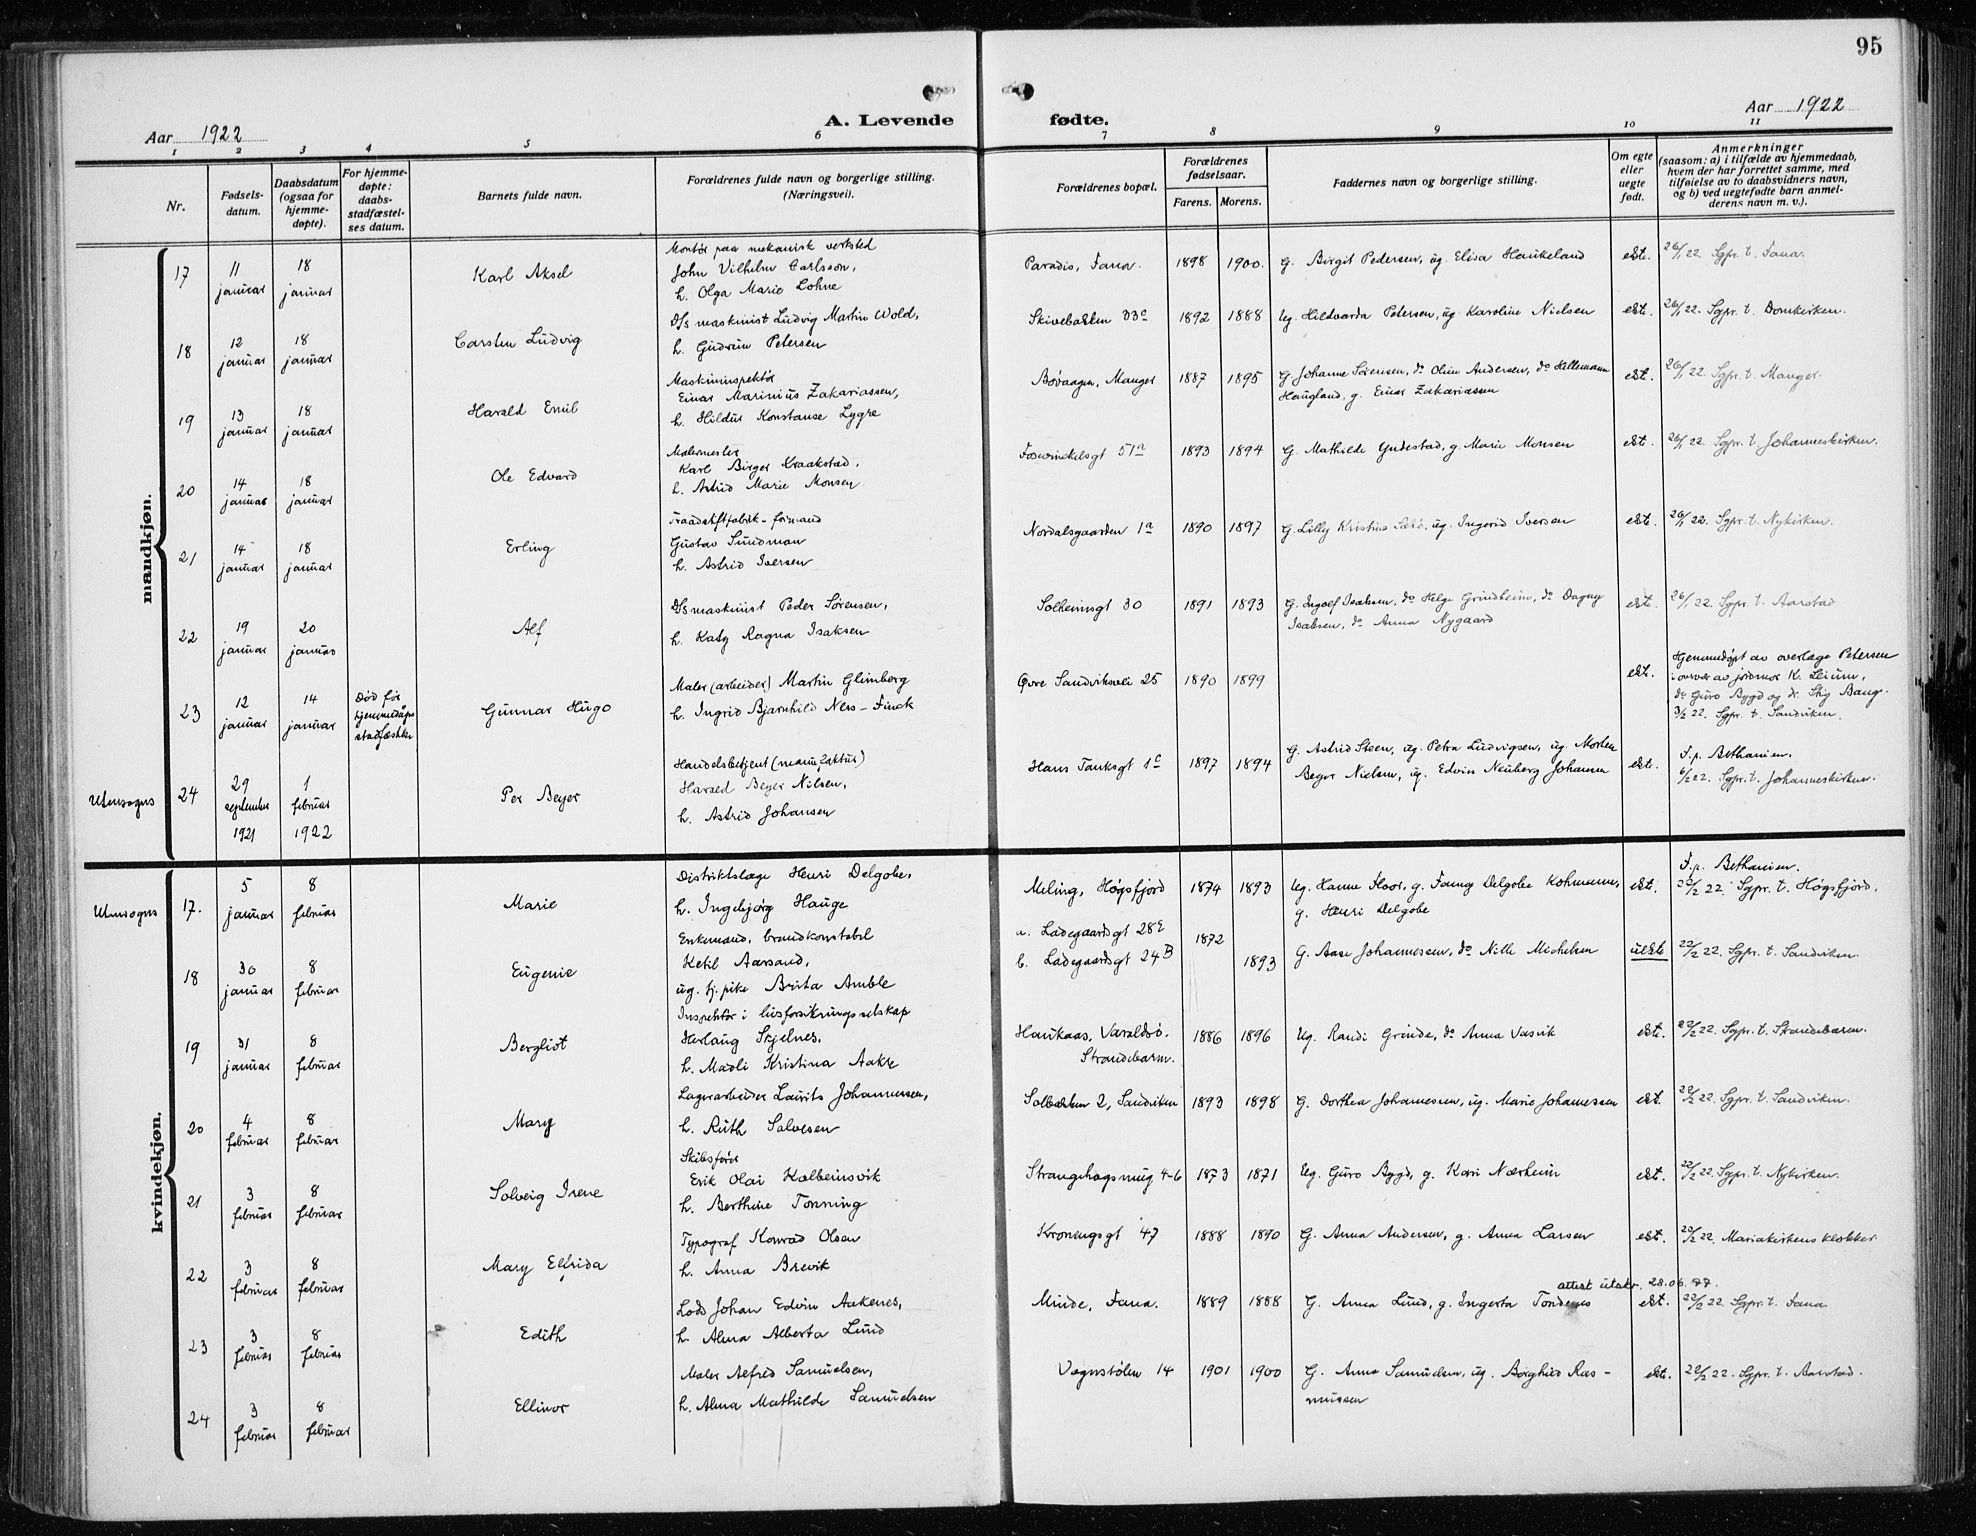 95
Aar 1922
A. Levende
fødte.
Aar 1922
1 2 3 4 5 6 7 8 9 10 11
Nr.
Fødsels-
datum.
Daabsdatum
(ogsaa for
hjemme-
døpte).
For hjemme-
døpte:
daabs-
stadfæstel-
ses datum.
Barnets fulde navn.
Forældrenes fulde navn og borgerlige stilling.
(Næringsvei).
Forældrenes bopæl.
Forældrenes
fødselsaar.
Farens. Morens.
Faddernes navn og borgerlige stilling.
Om egte
eller
uegte
født.
Anmerkninger
(saasom: a) i tilfælde av hjemmedaab,
hvem der har forrettet samme, med
tilføielse av to daabsvidners navn,
og b) ved uegtefødte barn anmel-
derens navn m. v.).
mandkjøn.
17
11
januar
18
januar
Karl Aksel
Montør paa mekanisk verksted
John Vilhelm Carlsson,
h. Olga Marie Lohne
Paradis, Fana.
1898
1900.
G. Birgit Pedersen, ug. Elisa Haukeland
ekte.
26/1 22. Sgpr. t. Fana.
18
12
januar
18
januar
Carsten Ludvig
D/s maskinist Ludvig Martin Wold,
h. Gudrun Petersen
Skivebakken 33c
1892
1888
Ug. Hildvarda Petersen, ug. Karoline Nielsen
ekte.
26/1 22. Sgpr. t. Domkirken.
19
13
januar
18
januar
Harald Emil
Maskininspektør
Einar Marinius Zakariassen,
h. Hildur Konstanse Lygre
Bøvaagen, Manger
1887
1895
G. Johanne Sørensen, do Oline Andersen, do Hellemann
Haugland, g. Einar Zakariassen
ekte.
26/1 22. Sgpr. t. Manger.
20
14
januar
18
januar
Ole Edvard
Malermester
Karl Birger Kraakstad.
h. Astrid Marie Monsen
Foswinckelsgt 51a
1893
1894
G. Mathilde Yndestad, g. Marie Monsen
ekte.
26/1 22. Sgpr. t. Johanneskirken.
21
14
januar
18
januar
Erling
Traadstiftfabrik-formand
Gustav Sundman
h. Astrid Iversen
Nordalsgaarden 1a
1890
1897
G. Lilly Kristine Sæbø, ug. Ingerid Iversen
ekte.
26/1 22. Sgpr. t. Nykirken.
22
19
januar
20
januar
Alf
D/s maskinist Peder Sørensen,
h. Katy Ragna Isaksen
Solheimsgt 30
1891
1893
G. Ingolf Isaksen, do Helge Grindheim, do Dagny
Isaksen, do Anna Nygaard
ekte.
26/1 22. Sgpr. t. Aarstad
23
12
januar
14
januar
Død før
hjemmedaabs
stadfæstelse
Gunnar Hugo
Maler (arbeider) Martin Glimberg
h. Ingrid Bjarnhild Ners-Finck
Øvre Sandviksvei 25
1890
1899
ekte.
Hjemmedøpt av overlæge Petersen
i overvær av jordmor K. Leium,
do Guro Bygd og dr. Stig Bang.
3/2 22. Sgpr. t. Sandviken.
Utensogns
24
29
september
1921
1
februar
1922
Per Beyer
Handelsbetjent (manufaktur)
Harald Beyer Nilsen,
h. Astrid Johansen
Hans Tanksgt 1c
1897
1894
G. Astrid Steen, ug. Petra Ludvigsen, ug. Morten
Beyer Nielsen, ug. Edvin Neuberg Johansen
ekte.
F. p. Bethanien.
6/2 22. Sgpr. t. Johanneskirken.
kvindekjøn.
Utensogns
17.
5
januar
8
februar
Marie
Distriktslæge Henri Delgobe,
h. Ingebjørg Hauge
Meling, Høgsfjord
1874
1893
Ug. Hanne Floor, g. Fanny Delgobe Kohmann,
g. Henri Delgobe
ekt.
F. p. Bethanien.
22/2 22. Sgpr. t. Høgsfjord.
18
30
januar
8
februar
Eugenie
Enkemand, brandkonstabel
Ketil Aarsand,
ug. tj. pike Brita Amble
a. Ladegaardsgt 28E
b. Ladegaardsgt 24B
1872
1893
G. Aase Johannessen, do Nille Michelsen
uekte
22/2 22. Sgpr. t. Sandviken.
19
31
januar
8
februar
Bergliot
Inspektør i livsforsikringsselskap
Herlaug Skjelnes,
h. Madli Kristina Aakre
Haukaas, Varaldsø.
Strandebarm.
1886
1896
Ug. Randi Grinde, do Anna Vasvik
ekt.
22/2 22. Sgpr. t. Strandebarm.
20
4
februar
8
februar
Mary
Lagerarbeider Laurits Johannessen,
h. Ruth Salvesen
Solbakken 2, Sandviken
1893
1898
G. Dorthea Johannessen, ug. Marie Johannessen
ekt.
22/2 22. Sgpr. t. Sandviken.
21
3
februar
8
februar
Solveig Irene
Skibsfører
Erik Olai Kolbeinsvik
h. Berthine Tonning
Strangehagsmug 4-6
1873
1871
Ug. Guro Bygd, g. Kari Nærheim
ekt.
22/2 22. Sgpr. t. Nykirken.
22
3
februar
8
februar
Mary Elfrida
Typograf Konrad Olsen
h. Anna Brevik
Kronengsgt 47
1888
1890
G. Anna Andersen, g. Anna Larsen
ekt.
22/2 22. Mariakirkens klokker
attest utskr. 28.06.77.
23
3
februar
8
februar
Edith
Lods Johan Edvin Aakenes,
h. Alma Alberta Lund
Minde, Fana.
1889
1888
G. Anna Lund, g. Ingerta Tondenes
ekt.
22/2 22. Sgpr. t. Fana
24
3
februar
8
februar
Ellinor
Maler Alfred Samuelsen,
h. Alma Mathilde Samuelsen
Vognstølen 14
1901
1900
G. Anna Samuelsen, ug. Borghild Ras-
mussen
ekt.
22/2 22. Sgpr. t. Aarstad.